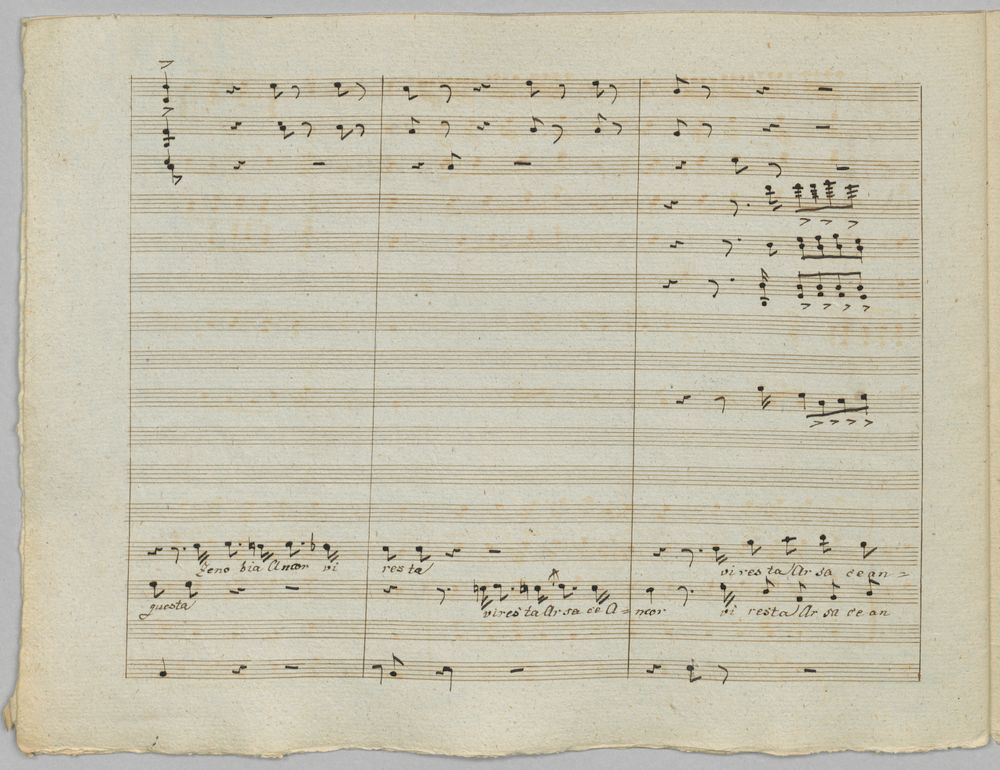 Zeno bia Ancor vi resta vi res ta Ar sa ce an =
questa vi res ta Ar sa ce A = ncor vi resta Ar sa ce an